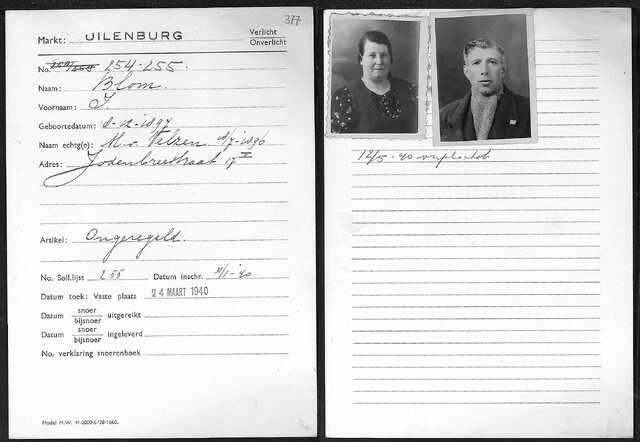 377
Markt: UILENBURG
Verlicht
Onverlicht
No. 254-255.
Naam: Blom.
Voornaam: I.
Geboortedatum: 8-12-1897
Naam echtg(e): M. v. Velzen /7-1896
Adres: Jodenbreestraat 17 II
Artikel: Ongeregeld.
No. Soll.lijst 255 Datum inschr. /1-'40
Datum toek: Vaste plaats 24 MAART 1940
Datum snoer uitgereikt
bijsnoer
Datum snoer ingeleverd
bijsnoer
No. verklaring snoerenboek
Model M.W. 41-3000-6/'38-1660.
12/5-'40